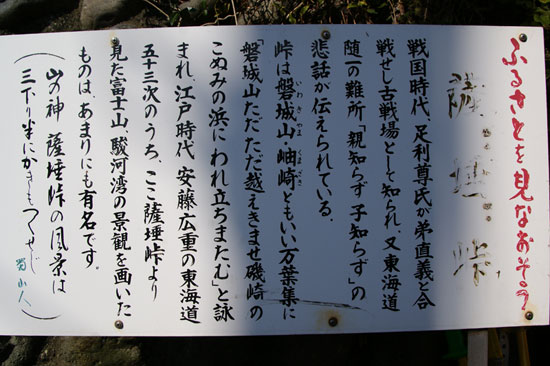 ふるさとを見なおそう
薩埵峠
戦国時代、足利尊氏が弟直義と合
戦せし古戦場として知られ、又東海道
随一の難所「親知らず子知らず」の
悲話が伝えられている。
峠は磐城山・岫崎ともいい万葉集に
いわきやま くきざき
「磐城山ただただ越えきませ磯崎の
こぬみの浜に われ立ちまたむ」と詠
まれ、江戸時代 安藤広重の東海道
五十三次のうち、ここ薩埵峠より
見た富士山、駿河湾の景観を画いた
ものは、あまりにも有名です。
(山の神 薩埵峠の風景は
三下り半にかきもつくせじ
蜀山人)